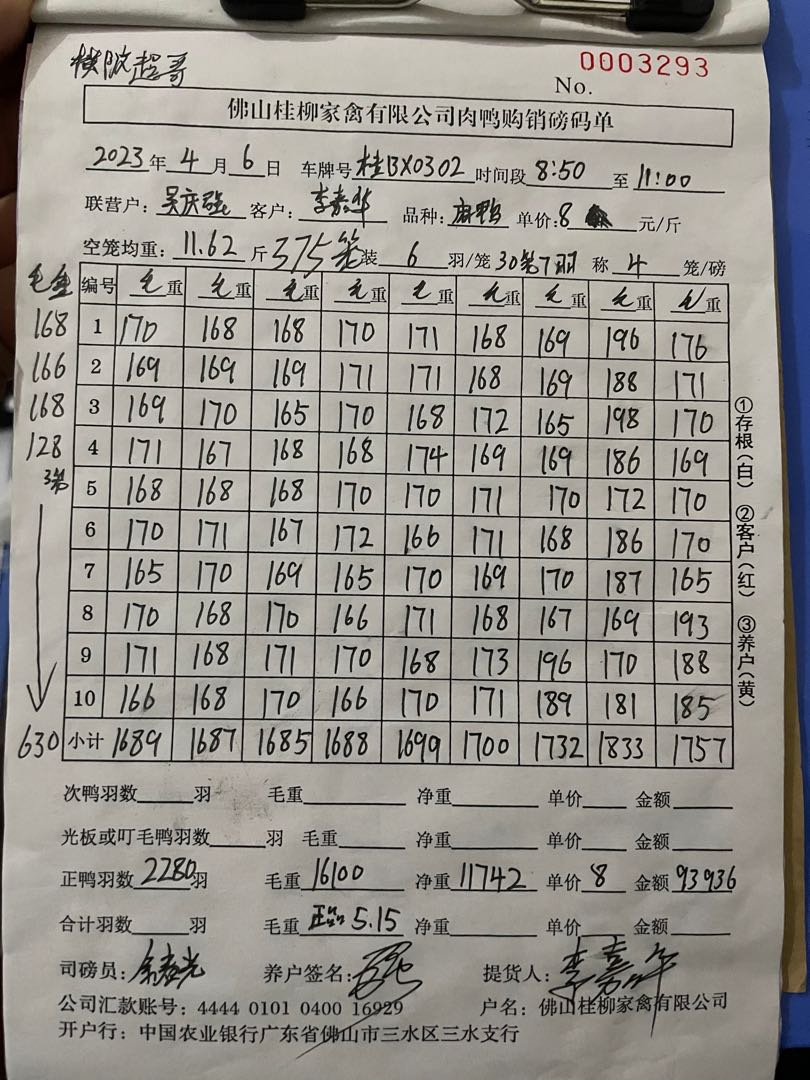 横院超哥
0003293
No.
佛山桂柳家禽有限公司肉鸭购销磅码单
2023年 4月 6日 车牌号 桂BX0302 时间段 8:50 至 11:00
联营户: 吴庆强 客户: 李嘉华 品种: 麻鸭 单价: 8 元/斤
空笼均重: 11.62 斤 375笼 装 6 羽/笼 30第7羽 称 4 笼/磅
毛重 编号 毛重 毛重 毛重 毛重 毛重 毛重 毛重 毛重 毛重
168 1 170 168 168 170 171 168 169 196 176
166 2 169 169 169 171 171 168 169 188 171
168 3 169 170 165 170 168 172 165 198 170
128 4 171 167 168 168 174 169 169 186 169
3第 5 168 168 168 170 170 171 170 172 170
6 170 171 167 172 166 171 168 186 170
7 165 170 169 165 170 169 170 187 165
8 170 168 170 166 171 168 167 169 193
9 171 168 171 170 168 173 196 170 188
10 166 168 170 166 170 171 189 181 185
630 小计 1689 1687 1685 1688 1699 1700 1732 1833 1757
①存根(白) ②客户(红) ③养户(黄)
次鸭羽数 羽 毛重 净重 单价 金额
光板或叮毛鸭羽数 羽 毛重 净重 单价 金额
正鸭羽数 2280 羽 毛重 16100 净重 11742 单价 8 金额 93936
合计羽数 羽 毛重 5.15 净重 单价 金额
司磅员: 养户签名: 提货人: 李嘉华
公司汇款账号: 4444 0101 0400 16929 户名: 佛山桂柳家禽有限公司
开户行: 中国农业银行广东省佛山市三水区三水支行